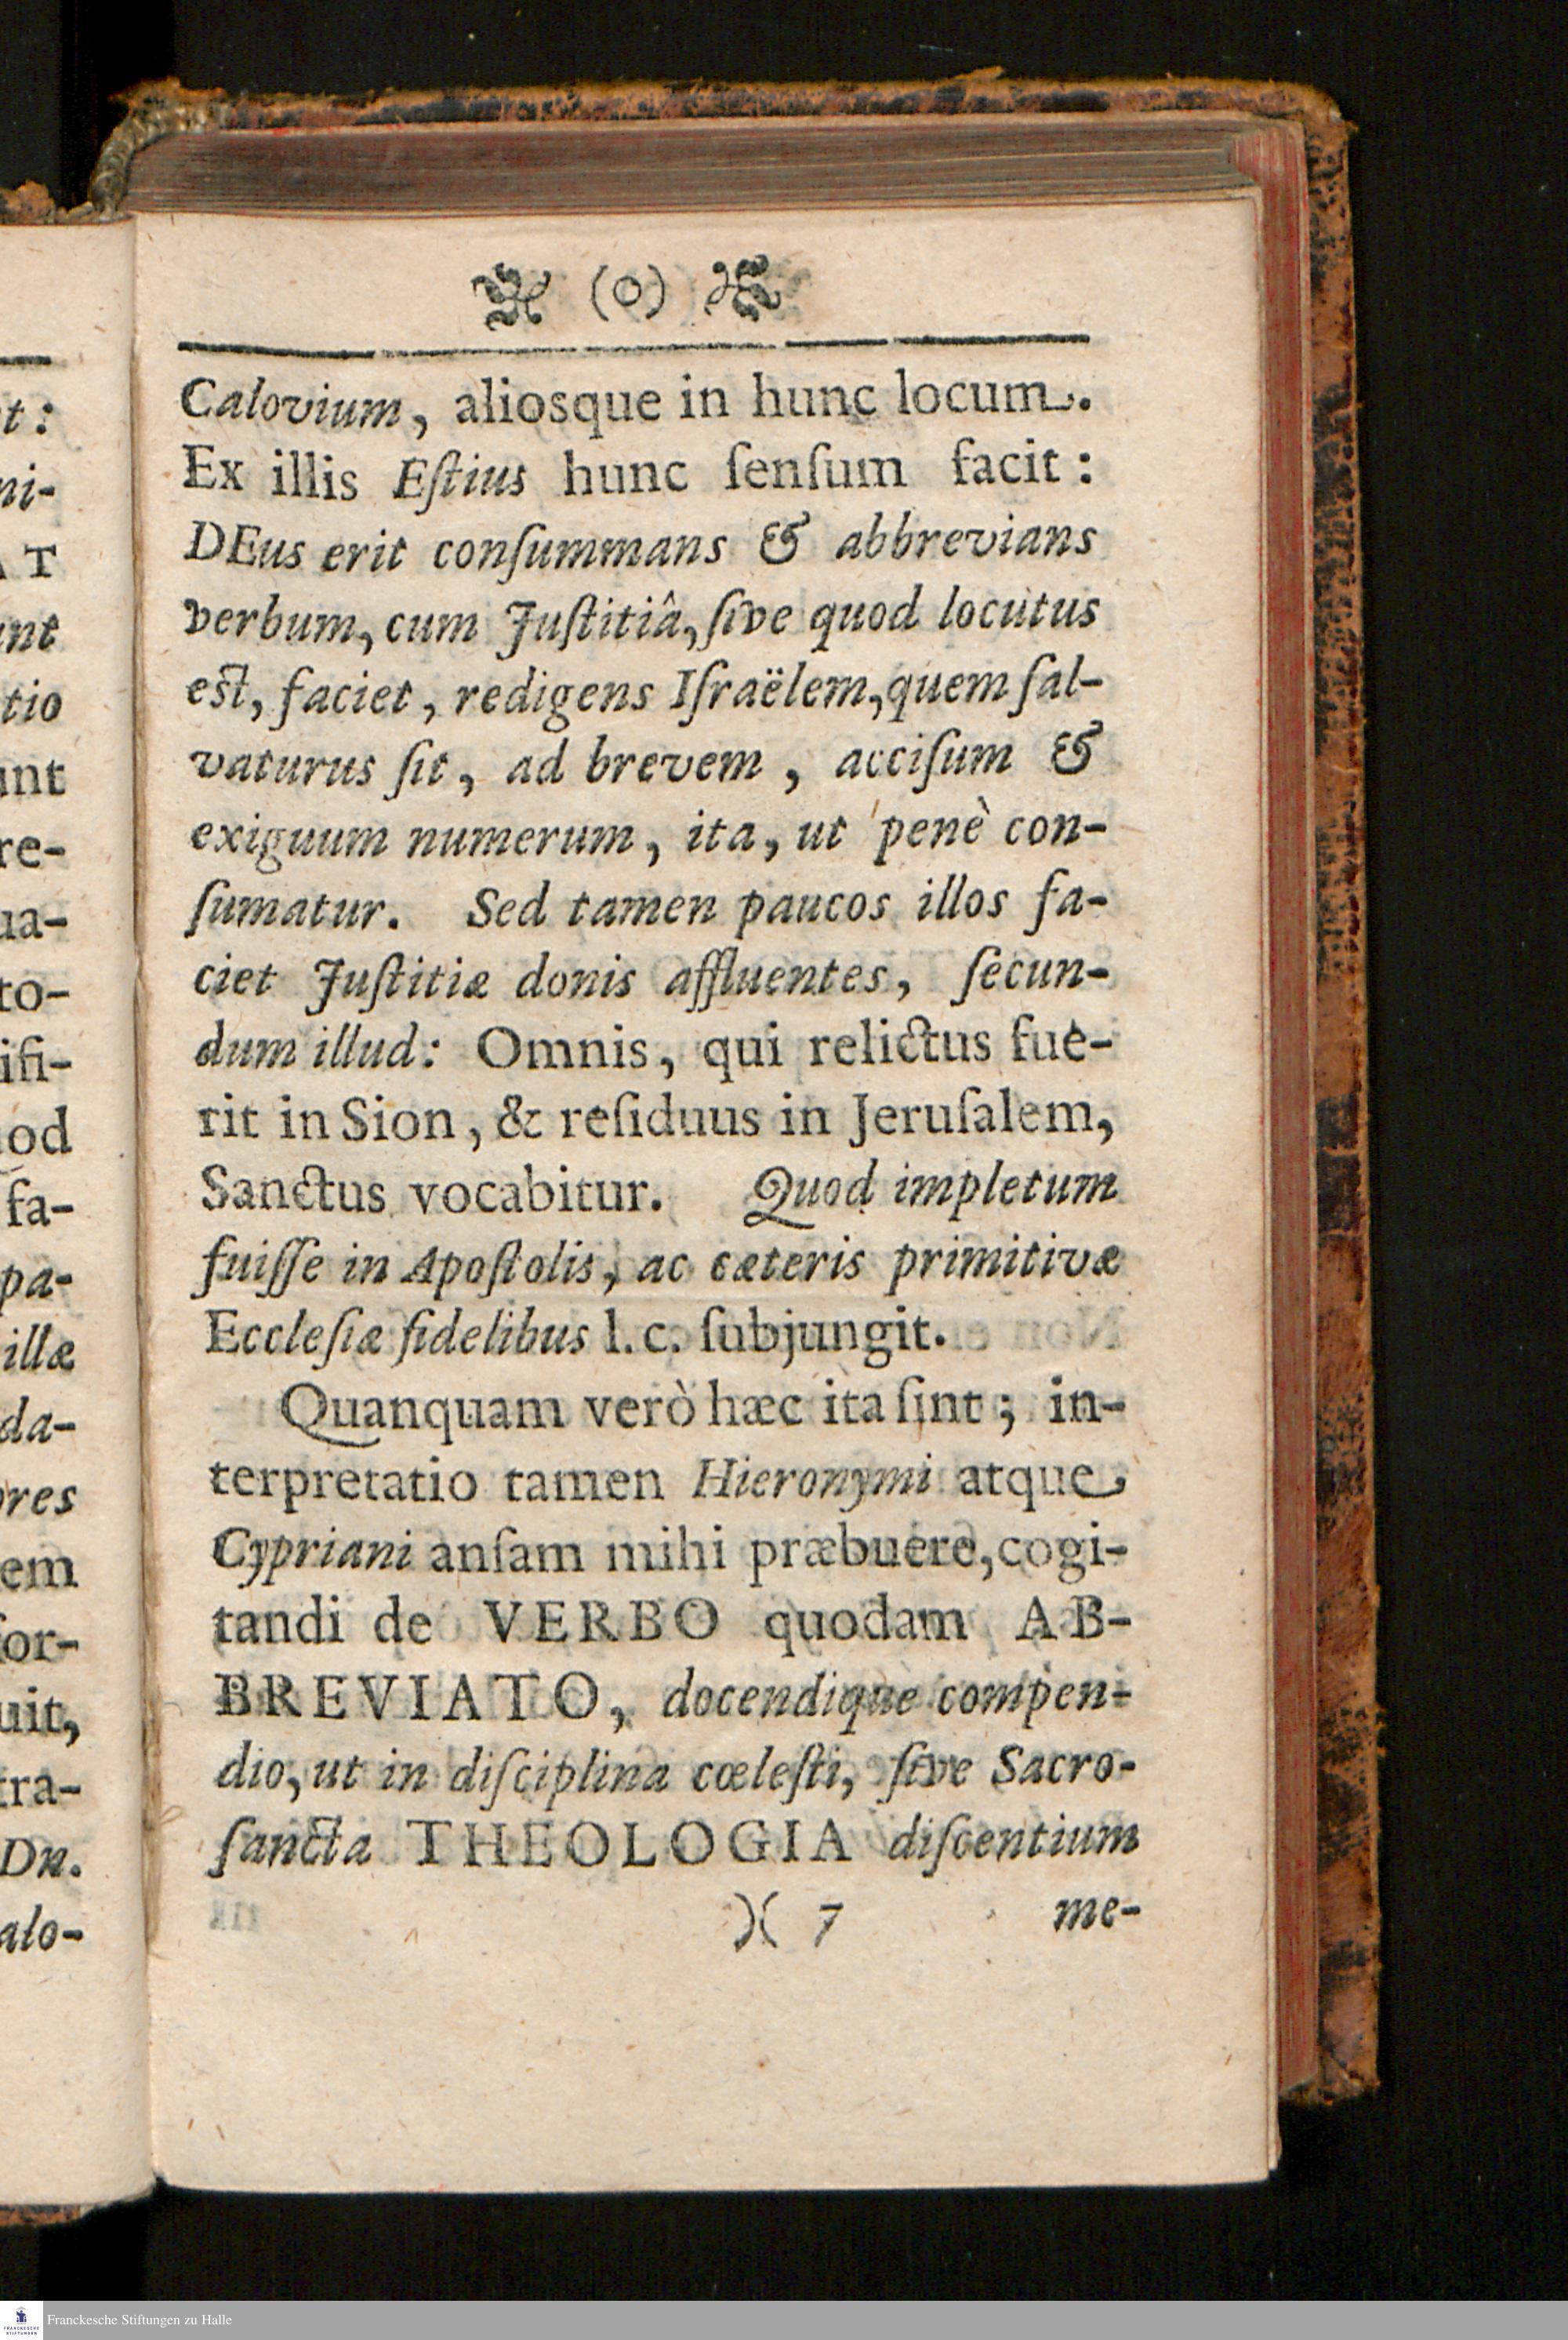 t:
ni-
AT
unt
tio
unt
re-
ua-
to-
ifi-
uod
fa-
pa-
illæ
da-
ores
em
for-
uit,
tra-
Dn.
alo-
(0)
Calovium, aliosque in hunc locum.
Ex illis Eſtius hunc ſenſum facit:
DEus erit conſummans & abbrevians
verbum, cum Juſtitiâ, ſive quod locutus
eſt, faciet, redigens Iſraëlem, quem ſal-
vaturus ſit, ad brevem, acciſum &
exiguum numerum, ita, ut penè con-
ſumatur. Sed tamen paucos illos fa-
ciet Juſtitiæ donis affluentes, ſecun-
dum illud: Omnis, qui relictus fue-
rit in Sion, & reſiduus in Jeruſalem,
Sanctus vocabitur. Quod impletum
fuiſſe in Apoſtolis, ac cæteris primitivæ
Eccleſiæ fidelibus l. c. ſubjungit.
Quanquam verò hæc ita ſint; in-
terpretatio tamen Hieronymi atque
Cypriani anſam mihi præbuere, cogi-
tandi de VERBO quodam AB-
BREVIATO, docendique compen-
dio, ut in diſciplina cœleſti, ſive Sacro-
ſancta THEOLOGIA diſcentium
)( 7 me-
FRANCKESCHE STIFTUNGEN
Franckesche Stiftungen zu Halle